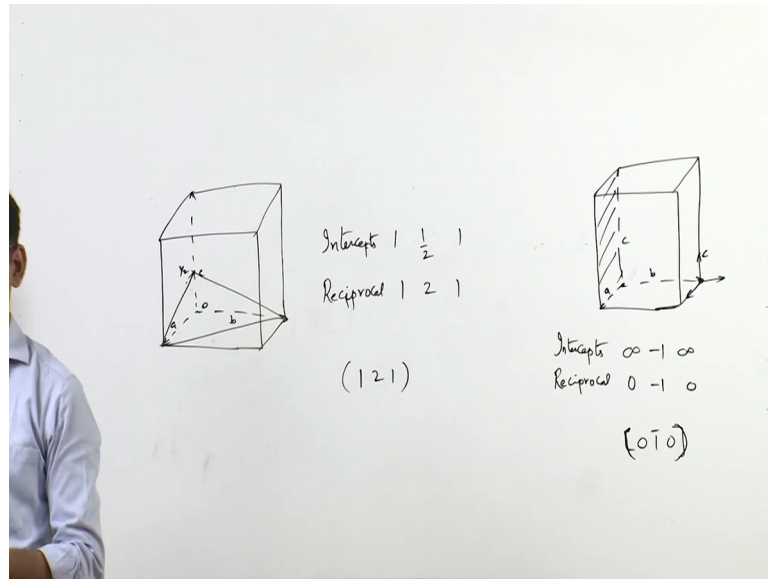 ½ c
O
a
b
Intercepts 1 1/2 1
Reciprocal 1 2 1
(1 2 1)
c
a
b
c
Intercepts ∞ -1 ∞
Reciprocal 0 -1 0
(0 1̄ 0)